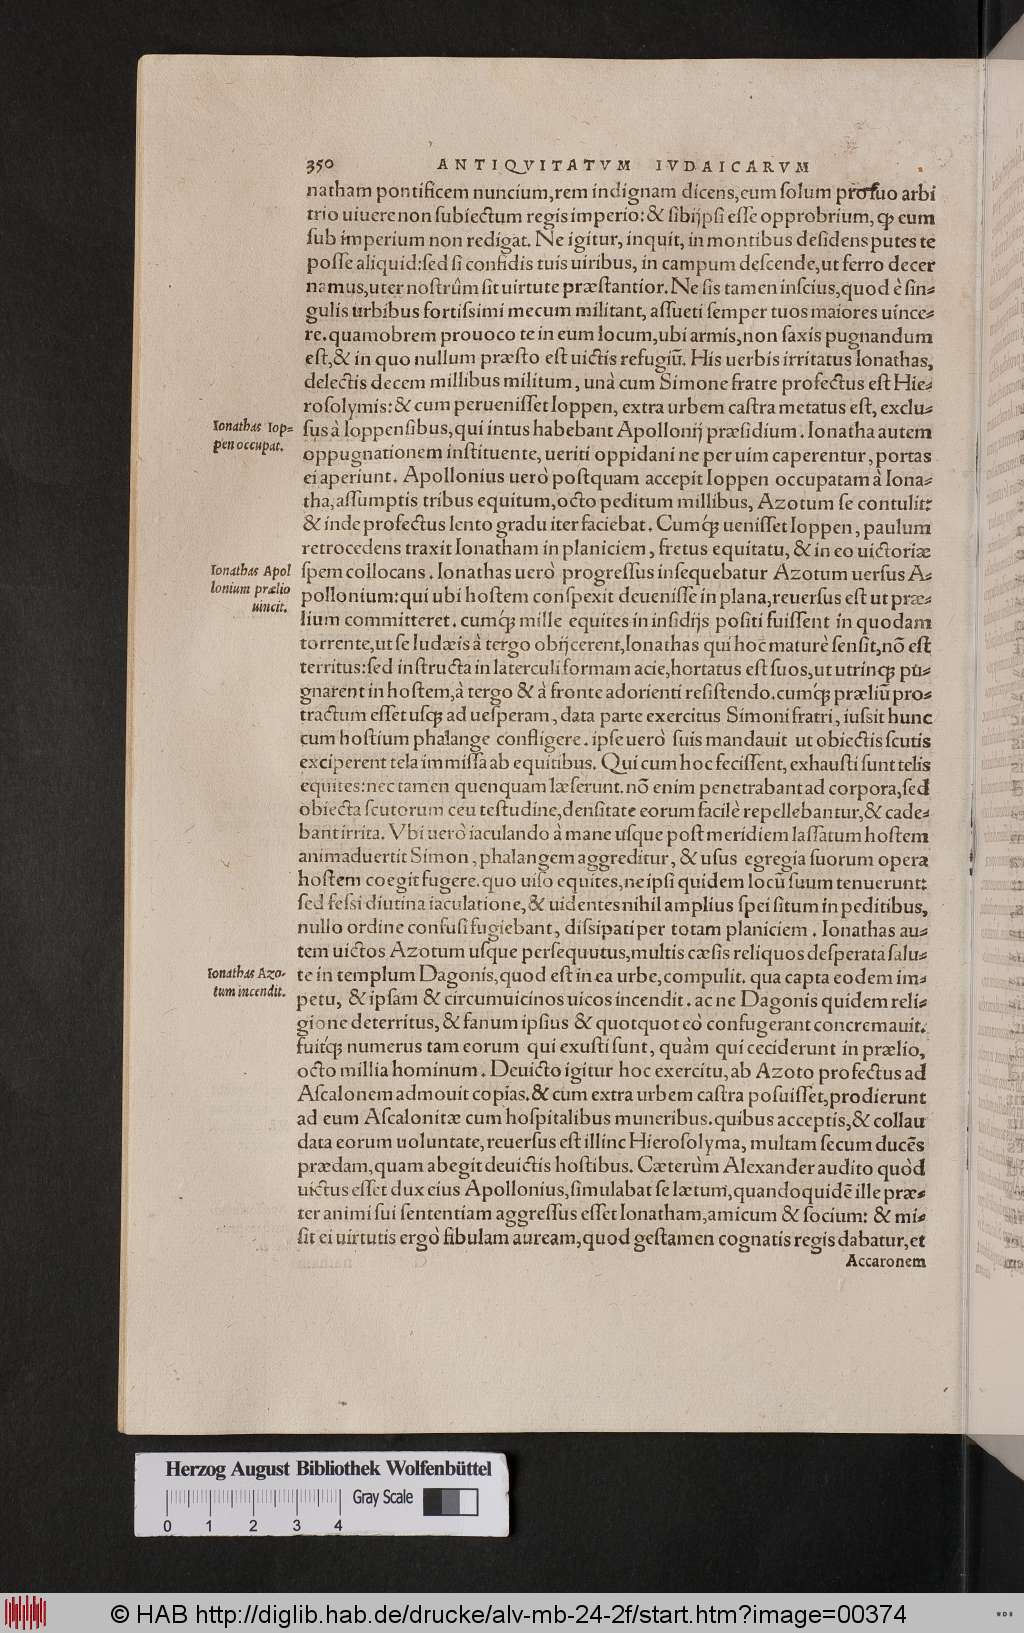 350 ANTIQVITATVM IVDAICARVM
natham pontificem nuncium,rem indignam dicens,eum ſolum pro ſuo arbi
trio uiuere non ſubiectum regis imperio:& ſibijpſi eſſe opprobrium, ꝙ eum
ſub imperium non redigat. Ne igitur, inquit, in montibus deſidens putes te
poſſe aliquid:ſed ſi confidis tuis uiribus, in campum deſcende,ut ferro decer
namus,uter noſtrûm ſit uirtute præſtantior. Ne ſis tamen inſcius,quod è ſin-
gulis urbibus fortiſsimi mecum militant, aſſueti ſemper tuos maiores uince-
re. quamobrem prouoco te in eum locum,ubi armis,non ſaxis pugnandum
eſt,& in quo nullum præſto eſt uictis refugiũ. His uerbis irritatus Ionathas,
delectis decem millibus militum, unà cum Simone fratre profectus eſt Hie-
roſolymis:& cum perueniſſet Ioppen, extra urbem caſtra metatus eſt, exclu-
Ionathas Iop-
pen occupat.
ſus à Ioppenſibus,qui intus habebant Apollonij præſidium. Ionatha autem
oppugnationem inſtituente, ueriti oppidani ne per uim caperentur, portas
ei aperiunt. Apollonius uerò poſtquam accepit Ioppen occupatam à Iona-
tha,aſſumptis tribus equitum,octo peditum millibus, Azotum ſe contulit:
& inde profectus lento gradu iter faciebat. Cumq́; ueniſſet Ioppen, paulum
retrocedens traxit Ionatham in planiciem, fretus equitatu, & in eo uictoriæ
Ionathas Apol
lonium prælio
uincit.
ſpem collocans. Ionathas uerò progreſſus inſequebatur Azotum uerſus A-
pollonium:qui ubi hoſtem conſpexit deueniſſe in plana,reuerſus eſt ut præ-
lium committeret. cumq́; mille equites in inſidijs poſiti fuiſſent in quodam
torrente,ut ſe Iudæis à tergo obijcerent,Ionathas qui hoc maturè ſenſit,nõ eſt
territus:ſed inſtructa in laterculi formam acie,hortatus eſt ſuos,ut utrinq; pu-
gnarent in hoſtem,à tergo & à fronte adorienti reſiſtendo. cumq́; præliũ pro-
tractum eſſet uſq; ad ueſperam, data parte exercitus Simoni fratri, iuſsit hunc
cum hoſtium phalange confligere. ipſe uerò ſuis mandauit ut obiectis ſcutis
exciperent tela immiſſa ab equitibus. Qui cum hoc feciſſent, exhauſti ſunt telis
equites:nec tamen quenquam læſerunt. nõ enim penetrabant ad corpora,ſed
obiecta ſcutorum ceu teſtudine,denſitate eorum facilè repellebantur,& cade-
bant irrita. Vbi uerò iaculando à mane uſque poſt meridiem laſſatum hoſtem
animaduertit Simon, phalangem aggreditur, & uſus egregia ſuorum opera
hoſtem coegit fugere. quo uiſo equites,ne ipſi quidem locũ ſuum tenuerunt:
ſed feſsi diutina iaculatione,& uidentes nihil amplius ſpei ſitum in peditibus,
nullo ordine confuſi fugiebant, diſsipati per totam planiciem. Ionathas au-
tem uictos Azotum uſque perſequutus,multis cæſis reliquos deſperata ſalu-
Ionathas Azo-
tum incendit.
te in templum Dagonis,quod eſt in ea urbe,compulit. qua capta eodem im-
petu, & ipſam & circumuicinos uicos incendit. ac ne Dagonis quidem reli-
gione deterritus, & fanum ipſius & quotquot eò confugerant concremauit.
fuitq́; numerus tam eorum qui exuſti ſunt, quàm qui ceciderunt in prælio,
octo millia hominum. Deuicto igitur hoc exercitu,ab Azoto profectus ad
Aſcalonem admouit copias. & cum extra urbem caſtra poſuiſſet,prodierunt
ad eum Aſcalonitæ cum hoſpitalibus muneribus. quibus acceptis,& collau
data eorum uoluntate,reuerſus eſt illinc Hieroſolyma, multam ſecum ducẽs
prædam,quam abegit deuictis hoſtibus. Cæterùm Alexander audito quòd
uictus eſſet dux eius Apollonius,ſimulabat ſe lætum,quandoquidẽ ille præ-
ter animi ſui ſententiam aggreſſus eſſet Ionatham,amicum & ſocium: & mi-
ſit ei uirtutis ergò fibulam auream,quod geſtamen cognatis regis dabatur,et
Accaronem
Herzog August Bibliothek Wolfenbüttel
Gray Scale
0 1 2 3 4
© HAB http://diglib.hab.de/drucke/alv-mb-24-2f/start.htm?image=00374